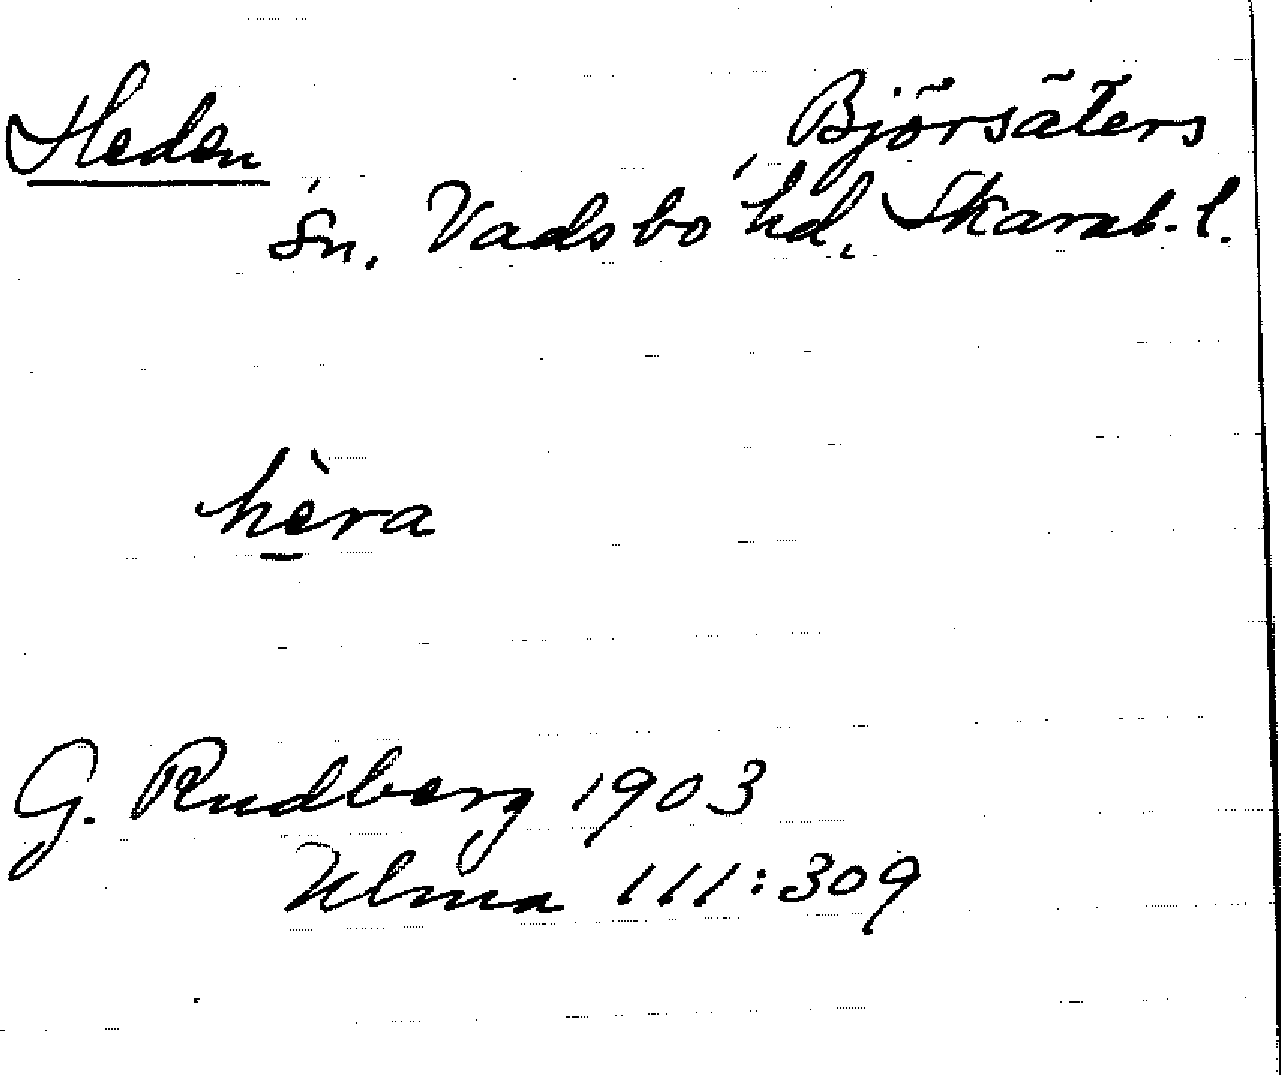 Heden Björsäters
sn. Vadsbo hd. Skarab. l.
hèra
G. Rudberg 1903
Ulma 111:309